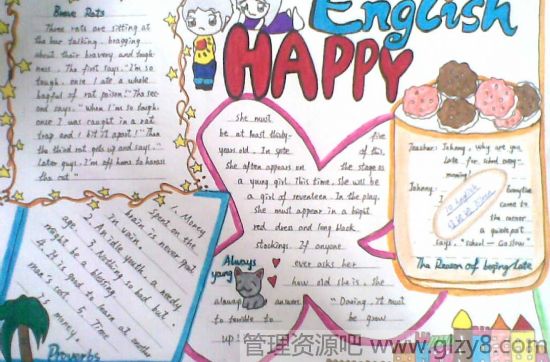 English
HAPPY
Brave Rats
Three rats are sitting at
the bar talking, bragging
about their bravery and tough-
ness. The first says, "I'm so
tough, once I ate a whole
bagful of rat poison!" The sec-
ond says, "When I'm so tough,
once I was caught in a rat
trap and I bit it apart!" Then
the third rat gets up and says, "
Later guys, I'm off home to harass
the cat."
she must
be at least thirty- five
years old. In spite of this,
she often appears on the stage as
a young girl. This time, she will be
a girl of seventeen. In the play,
she must appear in a bright
red dress and long black
stockings. If anyone
ever asks her
how old she is, she
always answers, "Daring, it must
to terrible to be grow
up!
Always
young
Teacher: Johnny, why are you
late for school every
morning!
Johnny: Everytime
I come to
the corner
a guidepost
says, "School-Go slow".
The Reason of beging Late
1. Money
Spent on the
brain is never spent
in vain.
2. An idle youth, a needy
age. 3. Nothing so bad but
might be a blessing.
4. It is good to learn at another
man's cost. 5. Time
is money
Proverbs
管理资源吧 www.glzy8.com